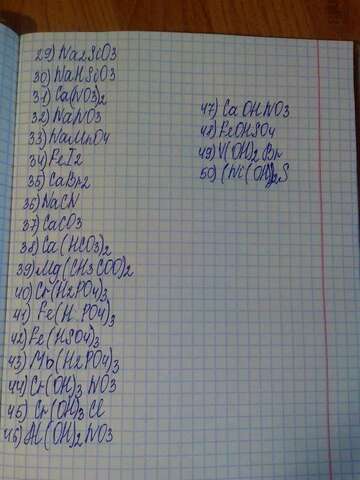 29) Na2SiO3
30) NaHSiO3
31) Ca(NO3)2
32) NaNO3
33) NaMnO4
34) FeI2
35) CaBr2
36) NaCN
37) CaCO3
38) Ca(HCO3)2
39) Mg(CH3COO)2
40) Cr(H2PO4)3
41) Fe(H PO4)3
42) Fe(HSO4)3
43) Mo(H2PO4)3
44) Cr(OH)3 NO3
45) Cr(OH)3 Cl
46) Al(OH)2 NO3
47) CaOHNO3
48) FeOHSO4
49) V(OH)2 Br
50) (Ni(OH)2S